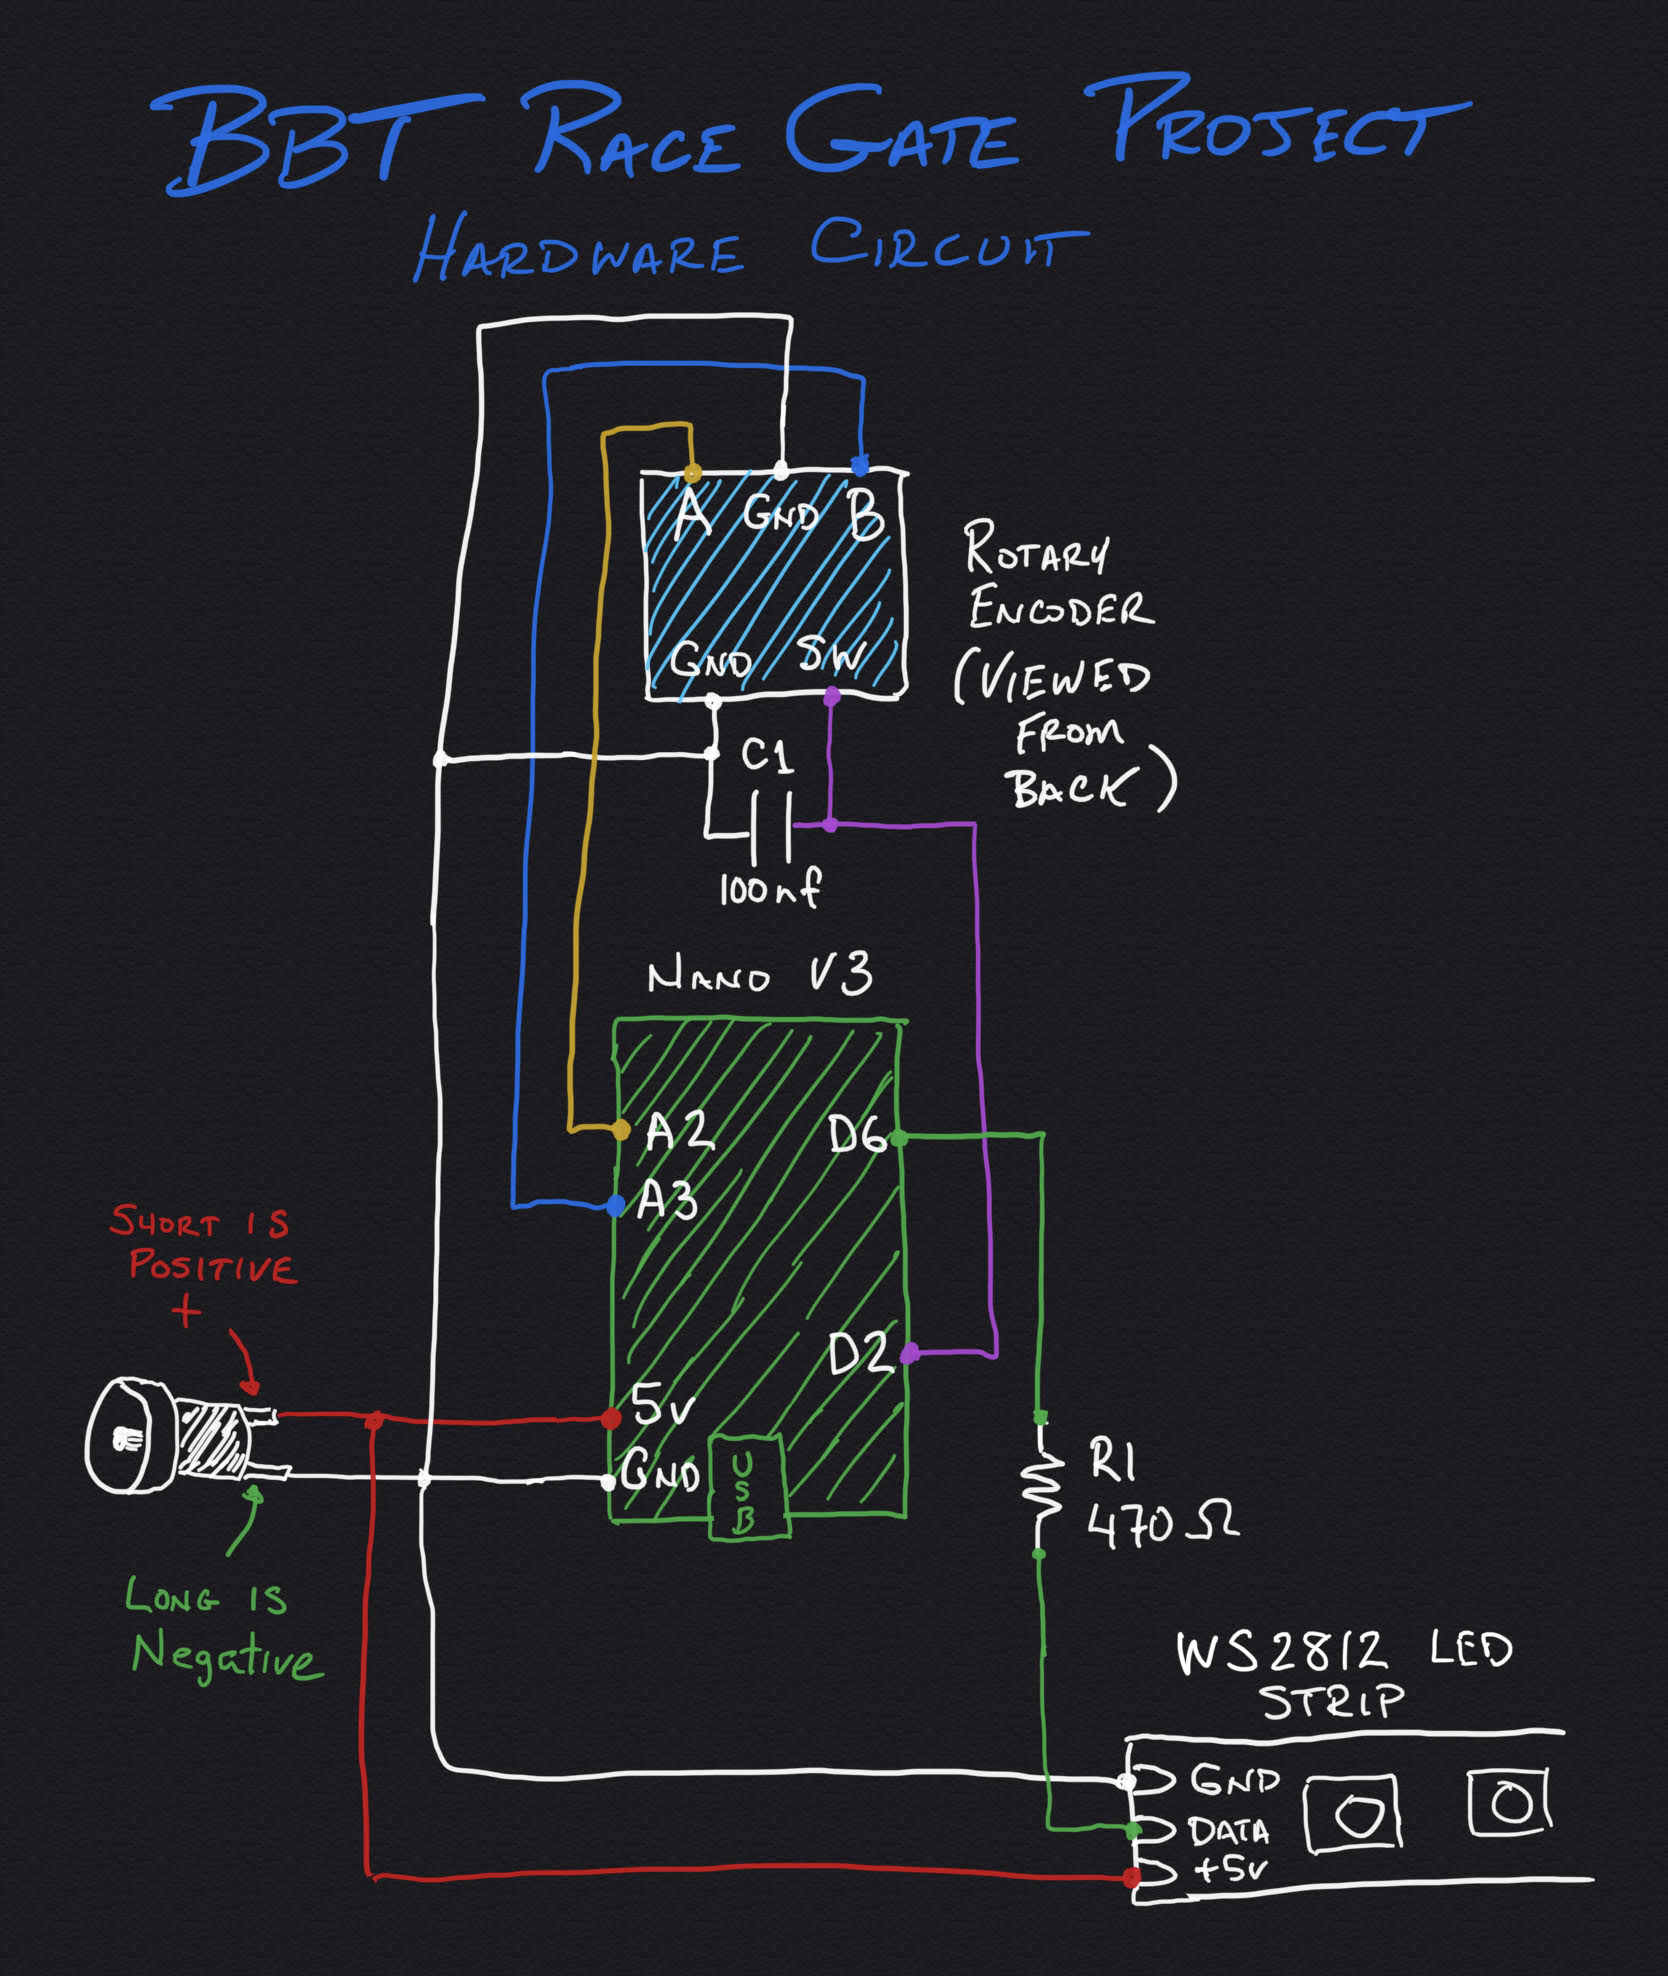 BBT RACE GATE PROJECT
HARDWARE CIRCUIT
A GND B
GND SW
ROTARY
ENCODER
(VIEWED
FROM
BACK)
C1
100nf
NANO V3
A2
D6
A3
D2
5v
GND
USB
SHORT IS
POSITIVE
+
LONG IS
Negative
R1
470Ω
WS2812 LED
STRIP
GND
DATA
+5v